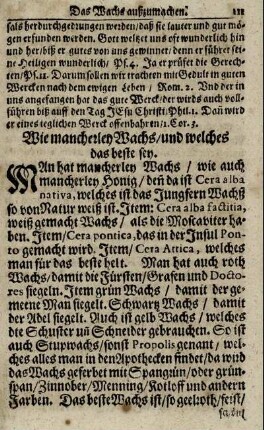 Das Wachs außzumachen. 111
sals herdurchgedrungen werden/daß sie lauter und gut mö-
gen erfunden werden. Gott welget uns offt wunderlich hin
und her/biß er gutes von uns gewinner/denn er führer sei-
ne Heiligen wunderlich/ Ps. 4. Ja er prüfet die Gerech-
ten/Ps. 11. Darum sollen wir trachten mit Gedult in guten
Wercken nach dem ewigen Leben / Rom. 2. Und der in
uns angefangen hat das gute Werck/der wirds auch voll-
führen biß auff den Tag JEsu Christi/Phil. 1. Dañ wird
er eines ieglichen Werck offenbahren/1. Cor. 3.
Wie mancherley Wachs/und welches
das beste sey.
MAn hat mancherley Wachs / wie auch
mancherley Honig / deñ da ist Cera alba
nativa, welches ist das Jungfern Wachß
so von Natur weiß ist. Item: Cera alba factitia,
weiß gemacht Wachs / als die Moscaviter ha-
ben. Item/Cera pontica, das in der Insul Pon-
to gemacht wird. Item/ Cera Attica, welches
man für das beste helt. Man hat auch roth
Wachs/damit die Fürsten/Grafen und Docto-
res siegeln. Item grün Wachs / damit der ge-
meine Man siegelt. Schwartz Wachs / damit
der Adel siegelt. Auch ist gelb Wachs / welches
die Schuster uñ Schneider gebrauchen. So ist
auch Stupwachs/sonst Propolis genant/ wel-
ches alles man in den Apothecken findet/da wird
das Wachs geferbet mit Spangrün/oder grün-
span/Zinnober/Menning/Kotloff und andern
Farben. Das beste Wachs ist/so geelroth/feist/